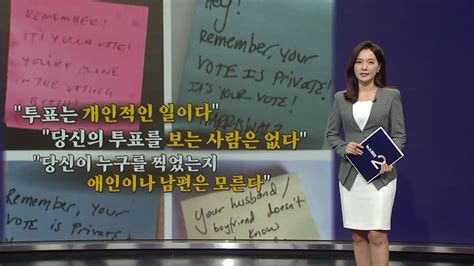 REMEMBER!
IT'S YOUR VOTE!
YOU'RE ALONE
IN THE VOTING
Hey!
Remember, your
VOTE IS PRIVATE!
IT'S YOUR VOTE!
"투표는 개인적인 일이다"
"당신의 투표를 보는 사람은 없다"
"당신이 누구를 찍었는지
애인이나 남편은 모른다"
Remember, your
VOTE is Private
Your husband/
boyfriend doesn't
know
2